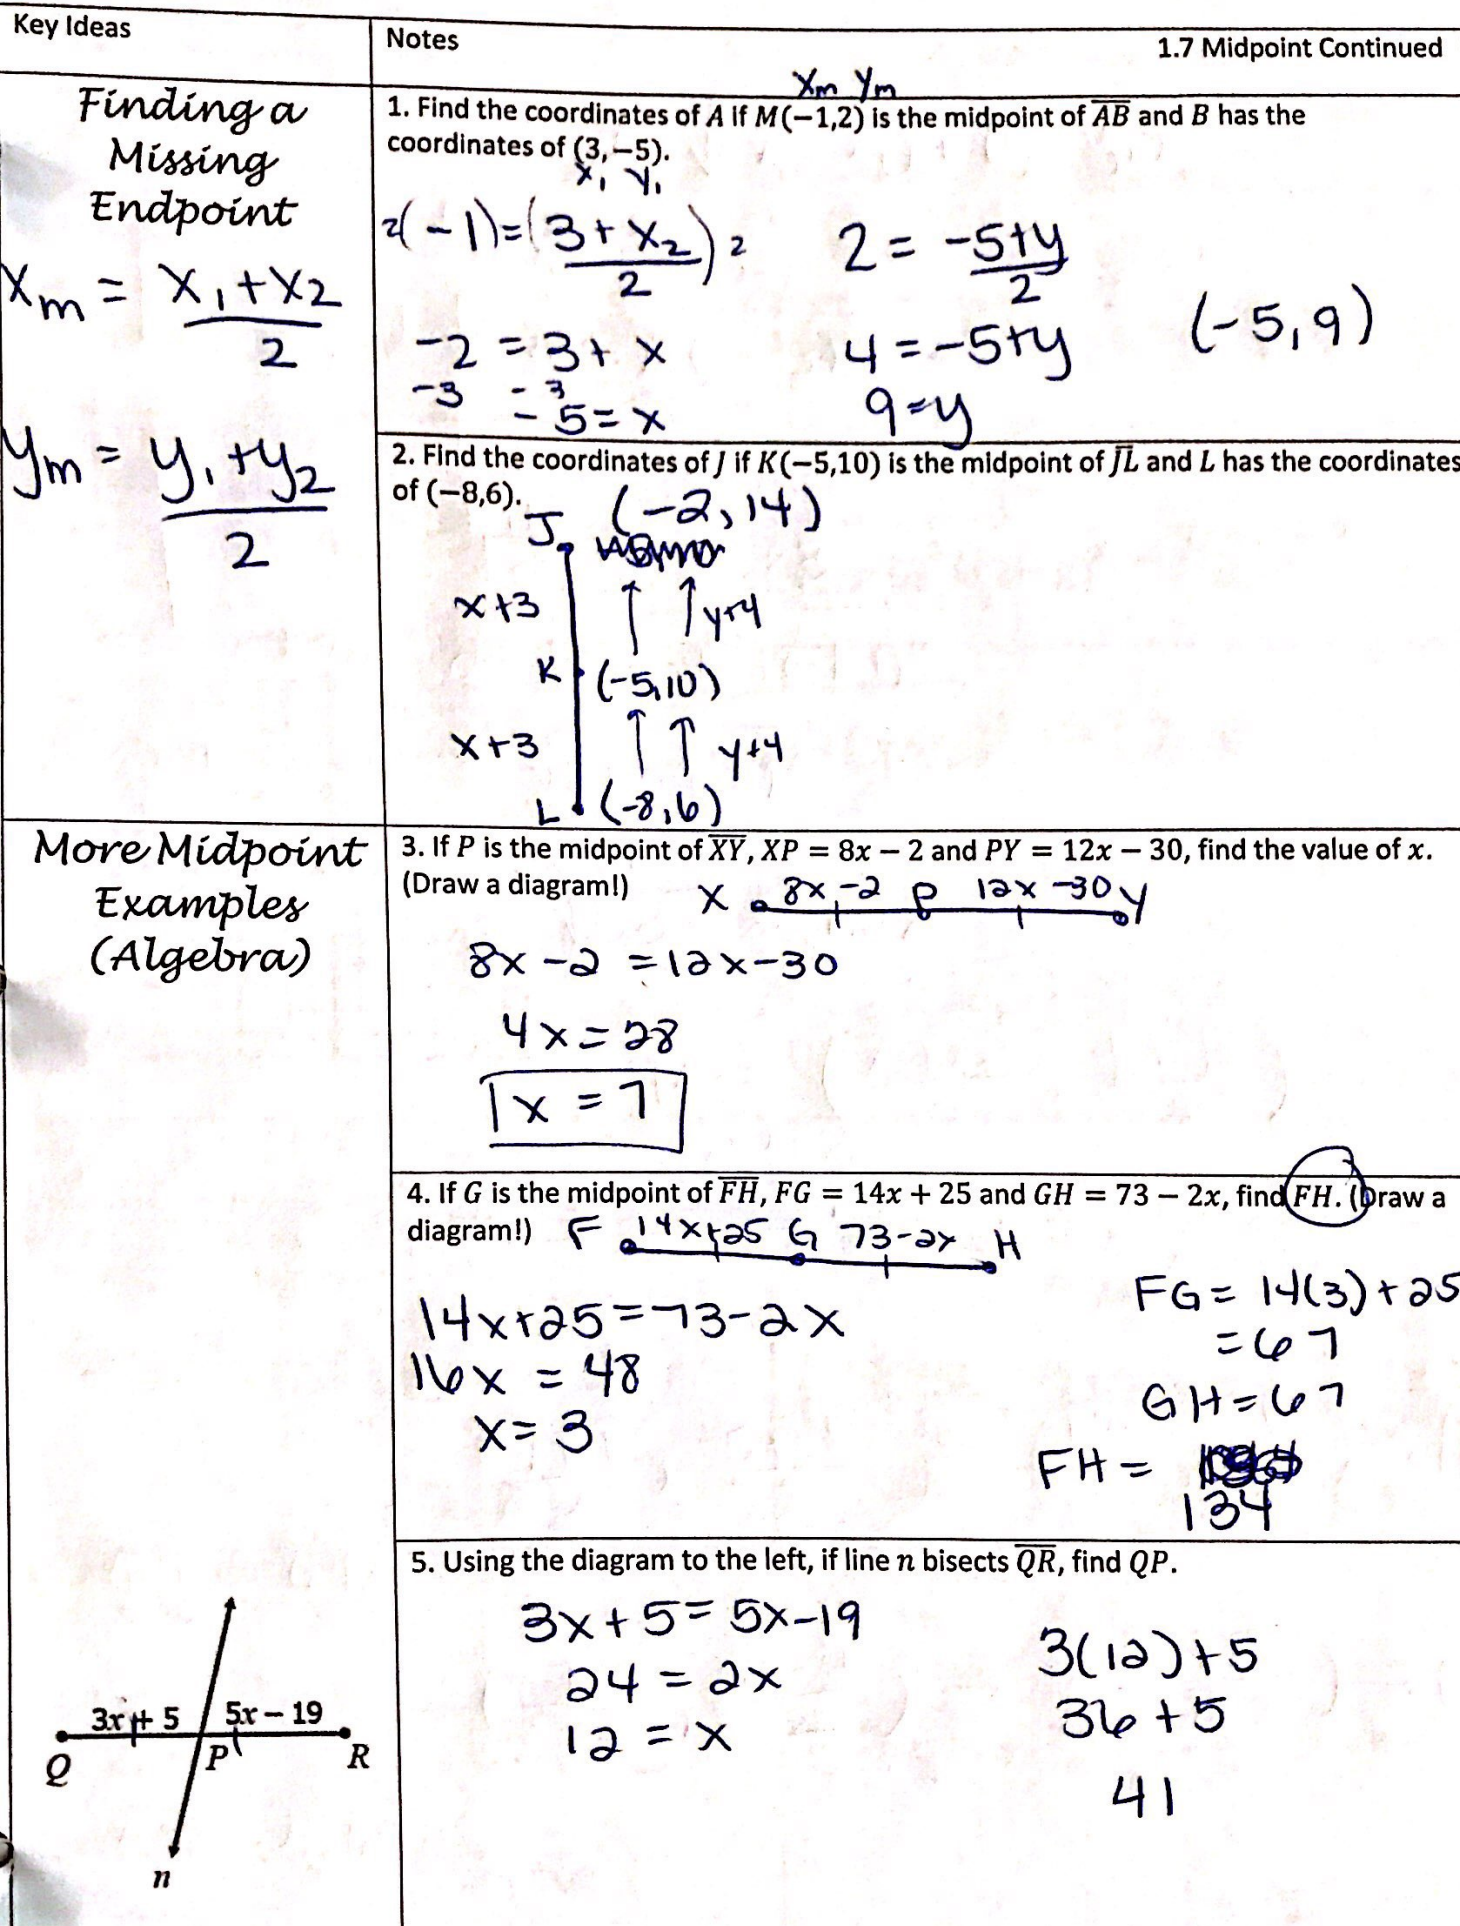 Key Ideas
Notes
1.7 Midpoint Continued
Finding a
Missing
Endpoint
Xm = X₁+X2
2
ym = y₁+y2
2
Xm Ym
1. Find the coordinates of A if M(−1,2) is the midpoint of AB and B has the
coordinates of (3,−5).
X₁ Y₁
2(-1)=(3+X2)2
2
-2 = 3+ x
-3 -3
-5=x
2 = -5+y
2
4=-5+y
9=y
(-5,9)
2. Find the coordinates of J if K(−5,10) is the midpoint of JL and L has the coordinates
of (−8,6).
J (-2,14)
x+3 y+4
K (-5,10)
x+3 y+4
L (-8,6)
More Midpoint
Examples
(Algebra)
3. If P is the midpoint of XY, XP = 8x − 2 and PY = 12x − 30, find the value of x.
(Draw a diagram!)
X 8x-2 P 12x-30 Y
8x-2 =12x-30
4x=28
x = 7
4. If G is the midpoint of FH, FG = 14x + 25 and GH = 73 − 2x, find FH. (Draw a
diagram!)
F 14x+25 G 73-2x H
14x+25=73-2x
16x = 48
x=3
FG= 14(3)+25
=67
GH=67
FH =
134
5. Using the diagram to the left, if line n bisects QR, find QP.
3x+5=5x-19
24=2x
12=x
3(12)+5
36+5
41
3x + 5 5x − 19
Q P R
n